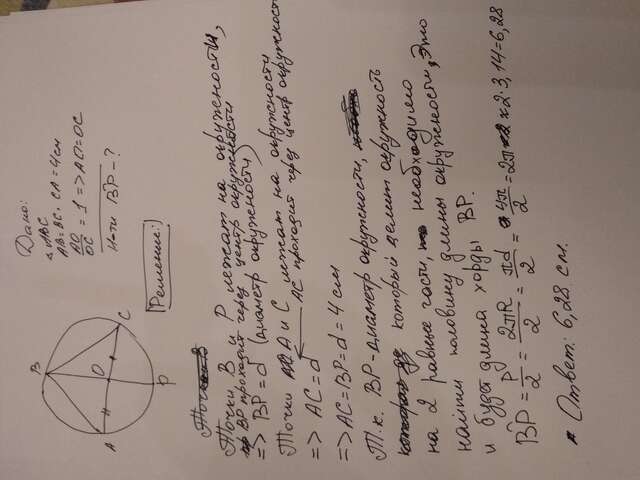 B
A
O
C
P
Дано:
△ABC
AB=BC=CA=4см
AO/OC = 1 => AO=OC
Найти BP - ?
Решение:
Точки B
Точки B и P лежат на окружности,
BP проходит через центр окружности
=> BP = d (диаметр окружности)
Точки A и C лежат на окружности
AC проходит через центр окружности
=> AC = d
=> AC = BP = d = 4 см
Т.к. BP - диаметр окружности,
который делит окружность
на 2 равные части, необходимо
найти половину длины окружности, это
и будет длина хорды BP.
BP = P/2 = 2πR/2 = πd/2 = 4π/2 = 2π ≈ 2·3,14=6,28
Ответ: 6,28 см.